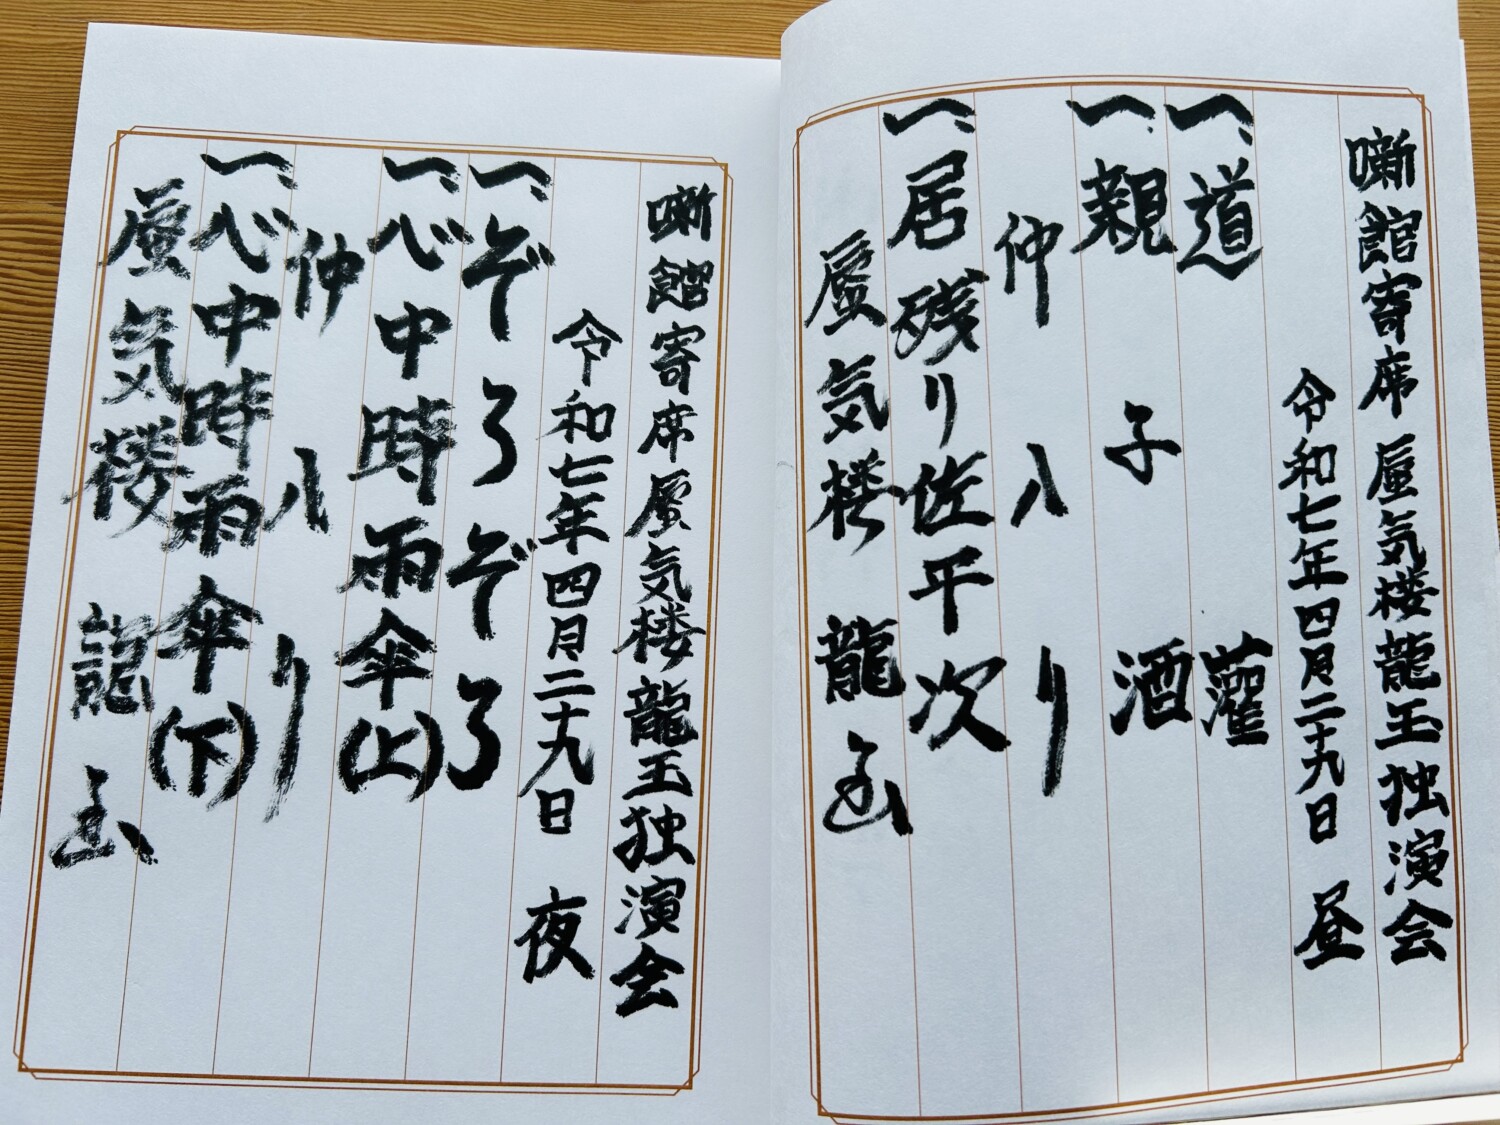 噺館寄席 蜃気楼龍玉独演会
令和七年四月二十九日 昼
一、道灌
一、親子酒
仲入り
一、居残り佐平次
蜃気楼 龍玉
噺館寄席 蜃気楼龍玉独演会
令和七年四月二十九日 夜
一、ぞろぞろ
一、心中時雨傘(上)
仲入り
一、心中時雨傘(下)
蜃気楼 龍玉